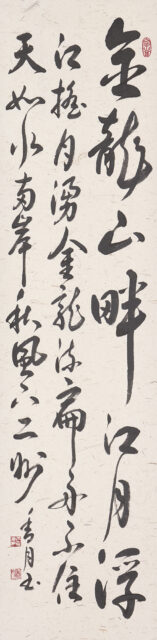 金龍山畔江月浮
江揺月湧金龍流扁舟不住
天如水両岸秋風下二州 香月書